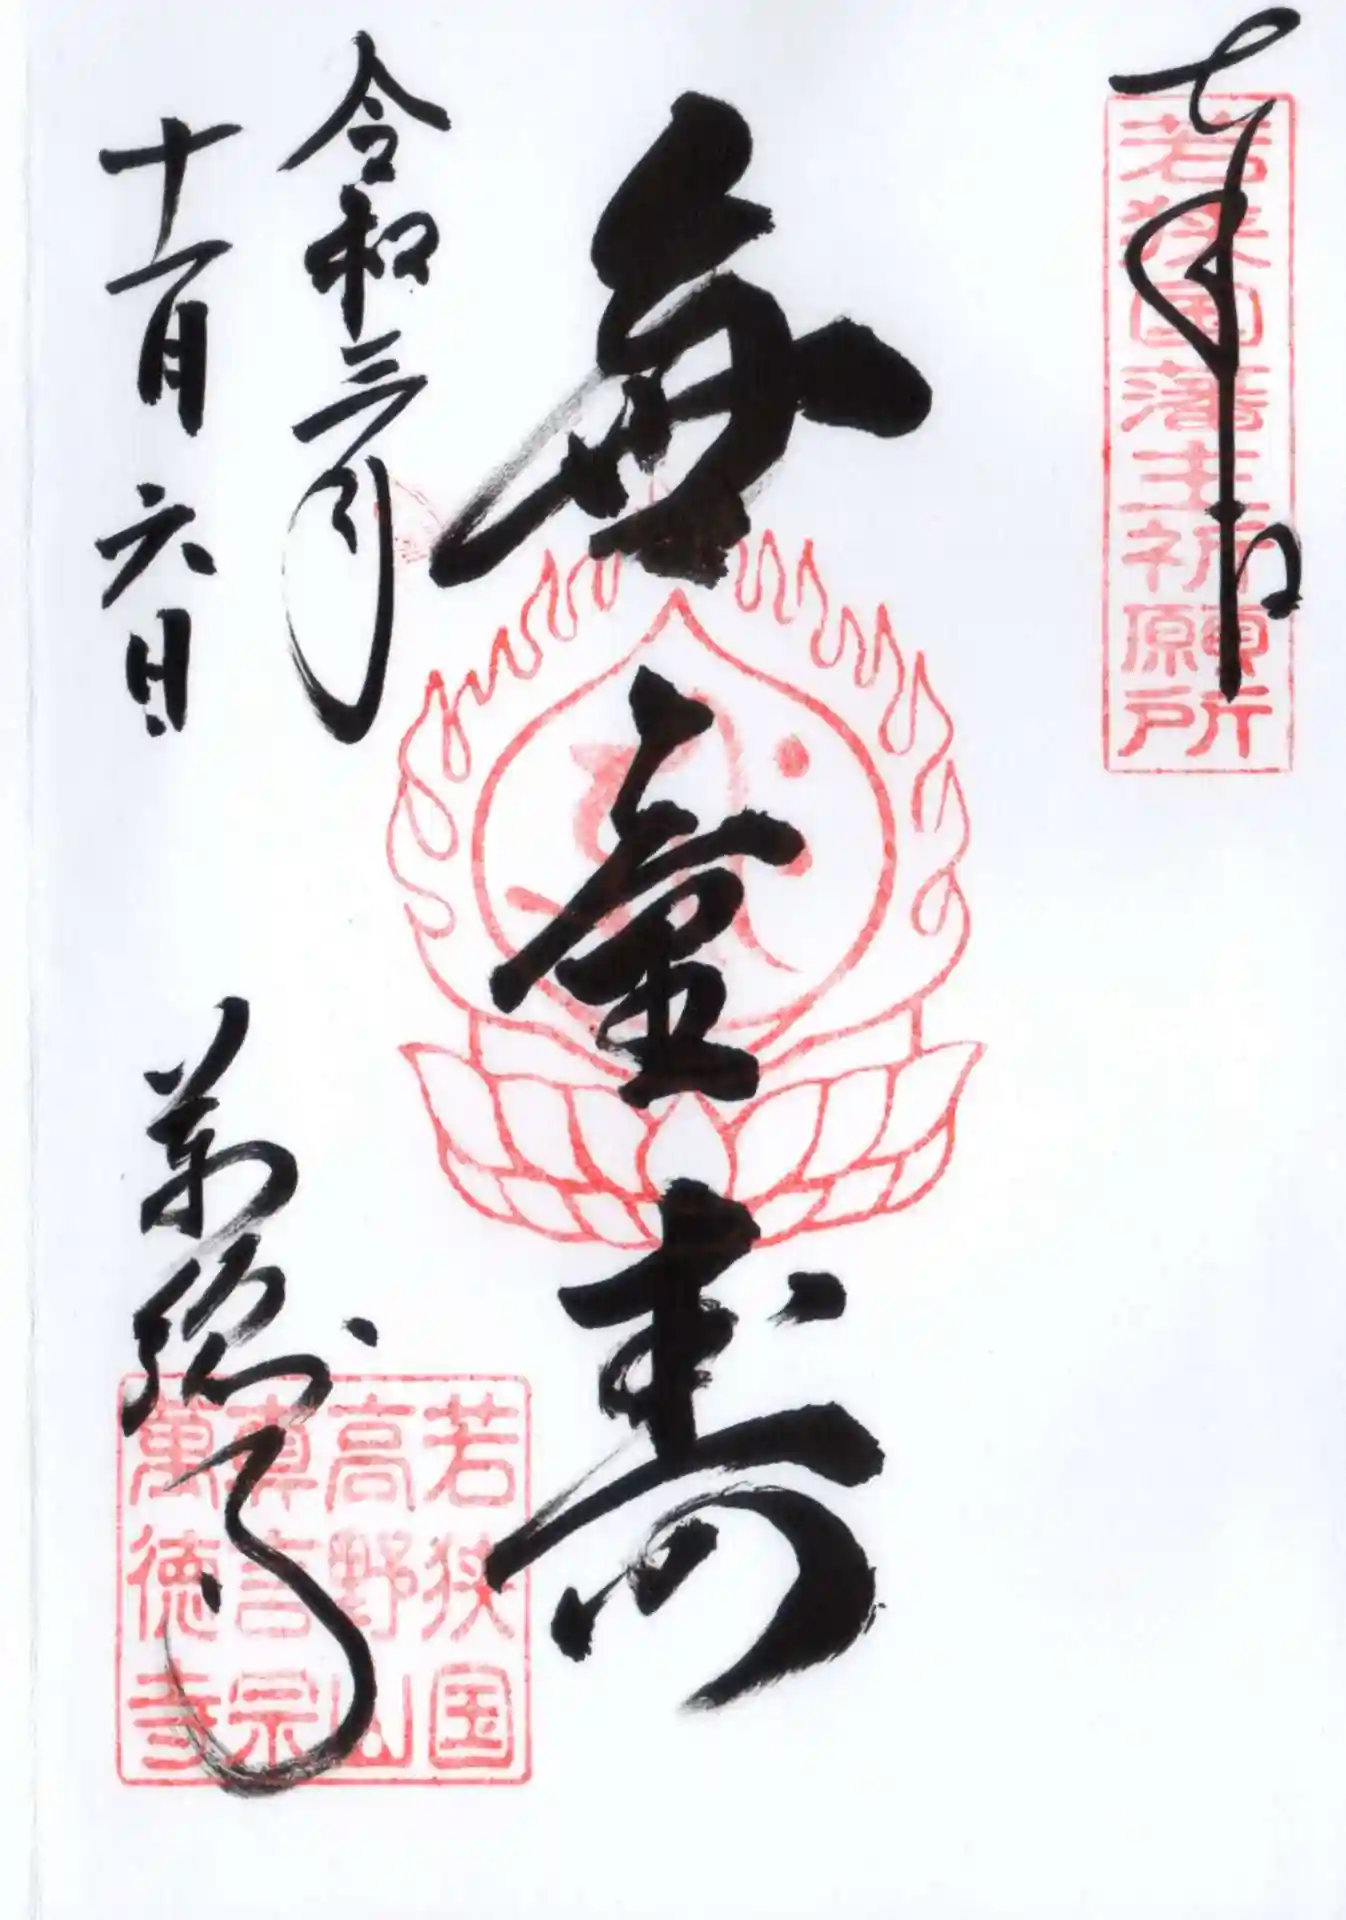 奉拝
若狭国藩主祈願所
無量寿
令和三年
十一月六日
萬徳寺
若狭国
高野山
真言宗
萬徳寺